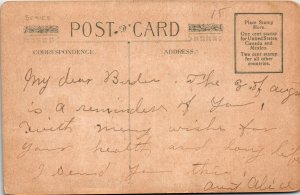 15
POST CARD
CORRESPONDENCE.
ADDRESS.
Place Stamp
Here.
One cent stamp
for United States
Canada and
Mexico.
Two cent stamp
for all other
countries.
My dear The 8 of Aug
is a reminder of you,
with many wishes for
your health and long life
I send you this,
Aunt